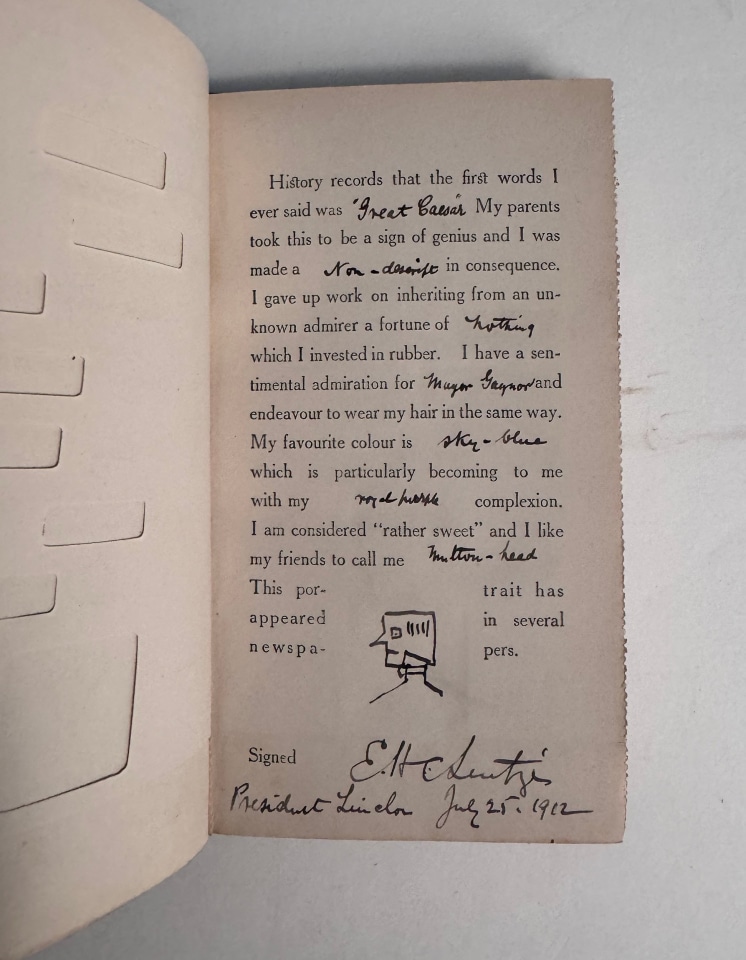 History records that the first words I
ever said was "Great Caesar" My parents
took this to be a sign of genius and I was
made a Non-descript in consequence.
I gave up work on inheriting from an un-
known admirer a fortune of nothing
which I invested in rubber. I have a sen-
timental admiration for Mayor Gaynor and
endeavour to wear my hair in the same way.
My favourite colour is sky-blue
which is particularly becoming to me
with my royal purple complexion.
I am considered "rather sweet" and I like
my friends to call me Mutton-head
This por- trait has
appeared in several
newspa- pers.
Signed E. H. C. Leutzé
President Lincoln July 25. 1912